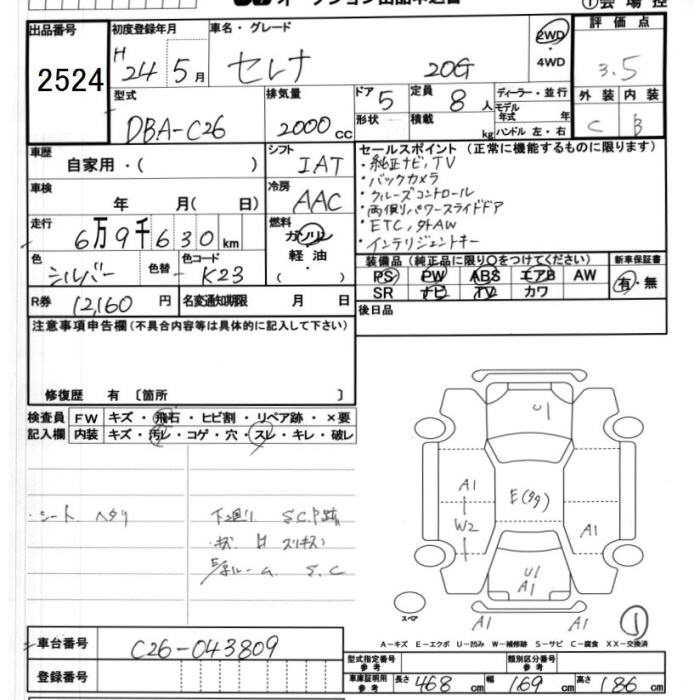 ①会場控
出品番号
2524
初度登録年月
H 24年 5月
車名・グレード
セレナ 20G
2WD
・4WD
評価点
3.5
外装 内装
C B
型式
DBA-C26
排気量
2000cc
ドア 5
形状
定員 8人
積載 kg
ディーラー・並行
モデル年式 年
ハンドル 左・右
車歴
自家用・( )
シフト
IAT
セールスポイント (正常に機能するものに限ります)
・純正ナビ,TV
・バックカメラ
・クルーズコントロール
・両側パワースライドドア
・ETC,外AW
・インテリジェントキー
車検
年 月( 日)
冷房
AAC
走行
6万9千630km
燃料
ガソリン
軽油
( )
色
シルバー
色替
色コード
K23
装備品 (純正品に限り○をつけてください)
PS PW ABS エアB AW
SR ナビ TV カワ
新車保証書
有・無
R券 12,160円
名変通知期限 月 日
後日品
注意事項申告欄(不具合内容等は具体的に記入して下さい)
修復歴 有 〔箇所 〕
検査員記入欄
FW キズ・飛石・ヒビ割・リペア跡・×要
内装 キズ・汚レ・コゲ・穴・スレ・キレ・破レ
・シート ヘタリ
下廻り S.C.P跡
S.C
U1
A1
W2
E(タタ)
A1
U1
A1
A1
A1
スペア
①
A-キズ E-エクボ U-凹み W-補修跡 S-サビ C-腐食 XX-交換済
車台番号
C26-043809
登録番号
型式指定番号 参考
類別区分番号 参考
車庫証明用 参考
長さ 468cm
幅 169cm
高さ 186cm